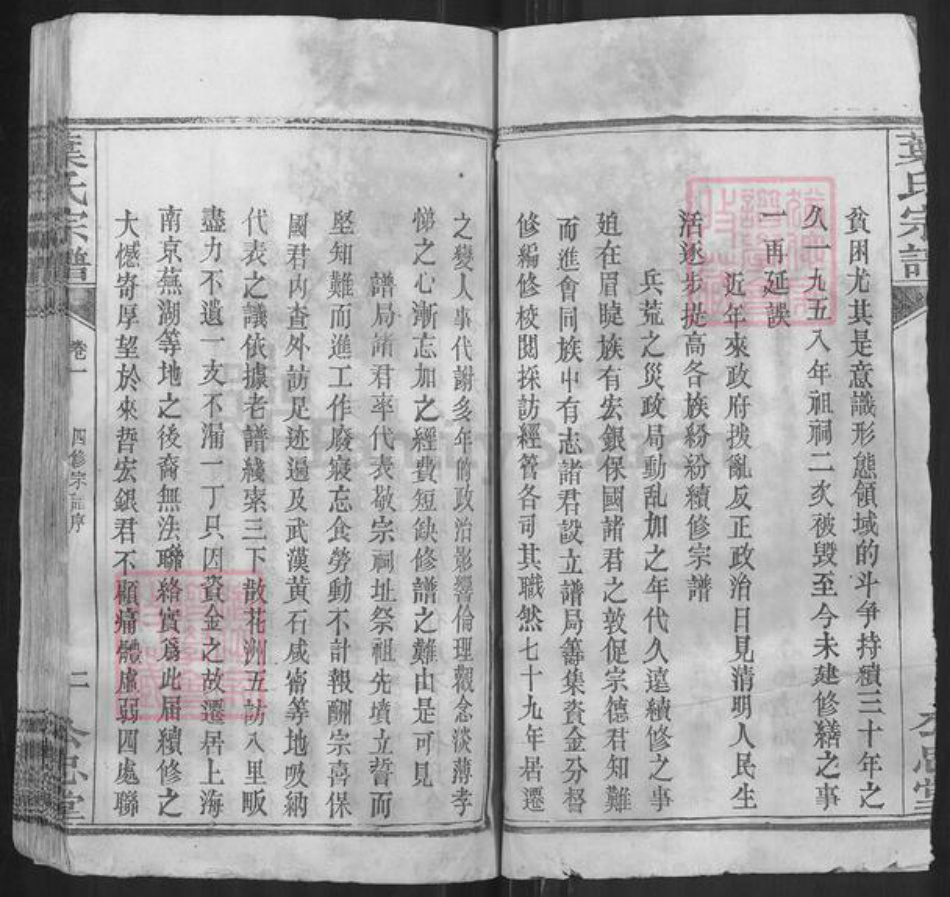 葉氏宗譜
貧困尤其是意識形態領域的斗爭持續三十年之
久一九五八年祖祠二次被毀至今未建修繕之事
一再延誤
近年來政府撥亂反正政治日見清明人民生
活逐步提高各族紛紛續修宗譜
兵荒之災政局動乱加之年代久遠續修之事
迫在眉睫族有宏銀保國諸君之敦促宗德君知難
而進會同族中有志諸君設立譜局籌集資金分督
修編修校閱採訪經管各司其職然七十九年居遷
之變人事代謝多年的政治影響倫理觀念淡薄孝
悌之心漸忘加之經費短缺修譜之難由是可見
譜局諸君率代表敬宗祠址祭祖先墳立誓而
堅知難而進工作廢寢忘食勞動不計報酬宗喜保
國君內查外訪足迹遍及武漢黃石咸甯等地吸納
代表之議依據老譜綫索三下散花洲五訪入里畈
盡力不遺一支不漏一丁只因資金之故遷居上海
南京蕪湖等地之後裔無法聯絡實爲此届續修之
大憾寄厚望於來哲宏銀君不顧痛體虛弱四處聯
葉氏宗譜
卷一
四修宗譜序
二
忠堂